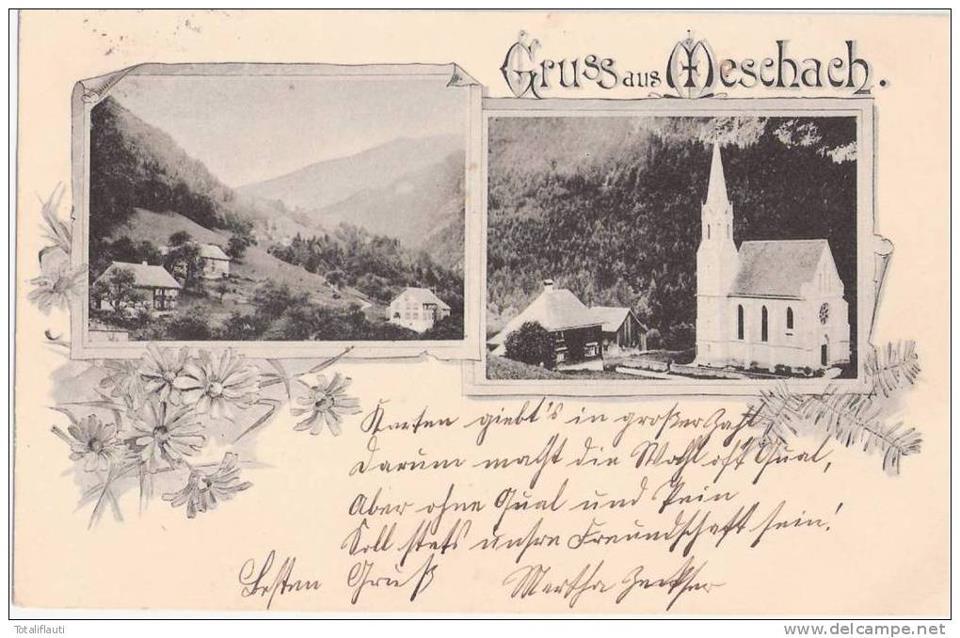 Gruss aus Meschach.
Karten giebt's in großer Zahl
Darum macht die Wahl oft Qual,
Aber ohne Qual und Pein
Soll stets unsre Freundschaft sein!
Besten Gruß Martha
Totaliflauti
www.delcampe.net